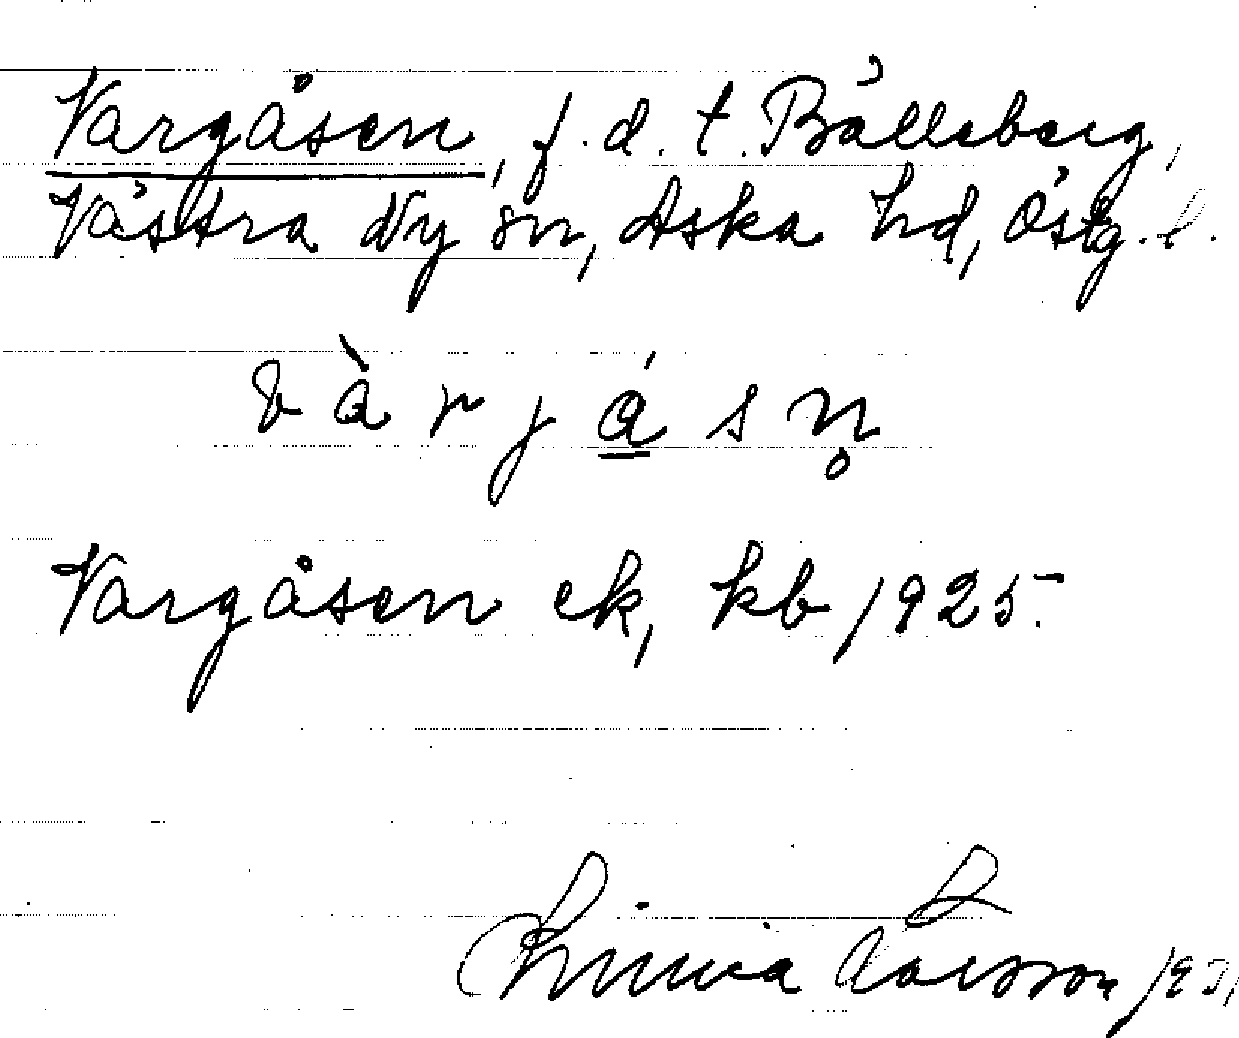 Vargåsen, f.d. t. Bålleberg,
Västra Ny sn, Aska hd, Östg. l.
v à r j á s n̥
Vargåsen ek, kb 1925.
Linnea Larsson 1931